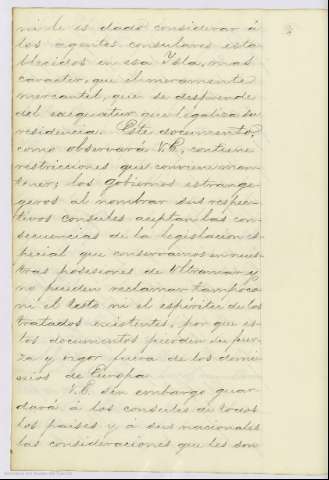 ni le es dado considerar á
los agentes consulares esta
blecidos en esa Ysla, mas
caracter, que el meramente
mercantil, que se desprende
del exequatur que legaliza su
residencia. Este documento,
como observará V.E, contiene
restricciones que conviene man
tener; los gobiernos estrange-
geros al nombrar sus respec-
tivos consules aceptan las con-
secuencias de la legislacion es-
pecial que conservamos en nues
tras posesiones de Ultramar y
no pueden reclamar tampoco
ni el testo ni el espíritu de los
tratados existentes, por que es-
tos documentos pierden su fuer-
za y vigor fuera de los domi-
nios de Europa.
V.E. sin embargo guar
dará á los consules de todos
los paises y á sus nacionales
las consideraciones que les son